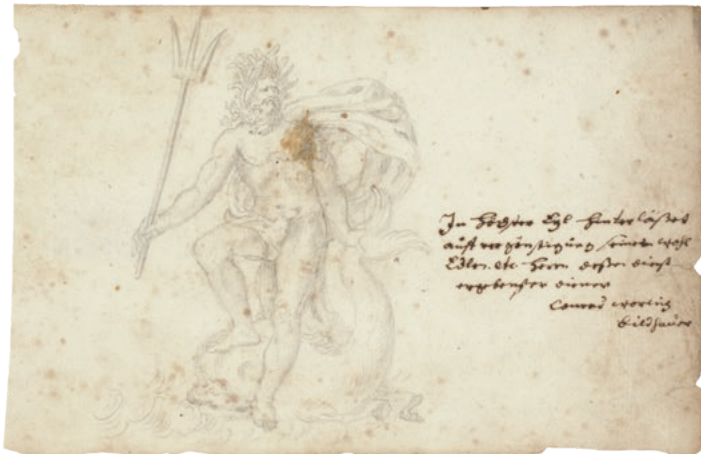 In höchster Eyl hinterläßet
auff vergönstigung seines wohl
Edlen etc. Herrn dessen dienst
ergebenster diener
Conrad
bildhauer